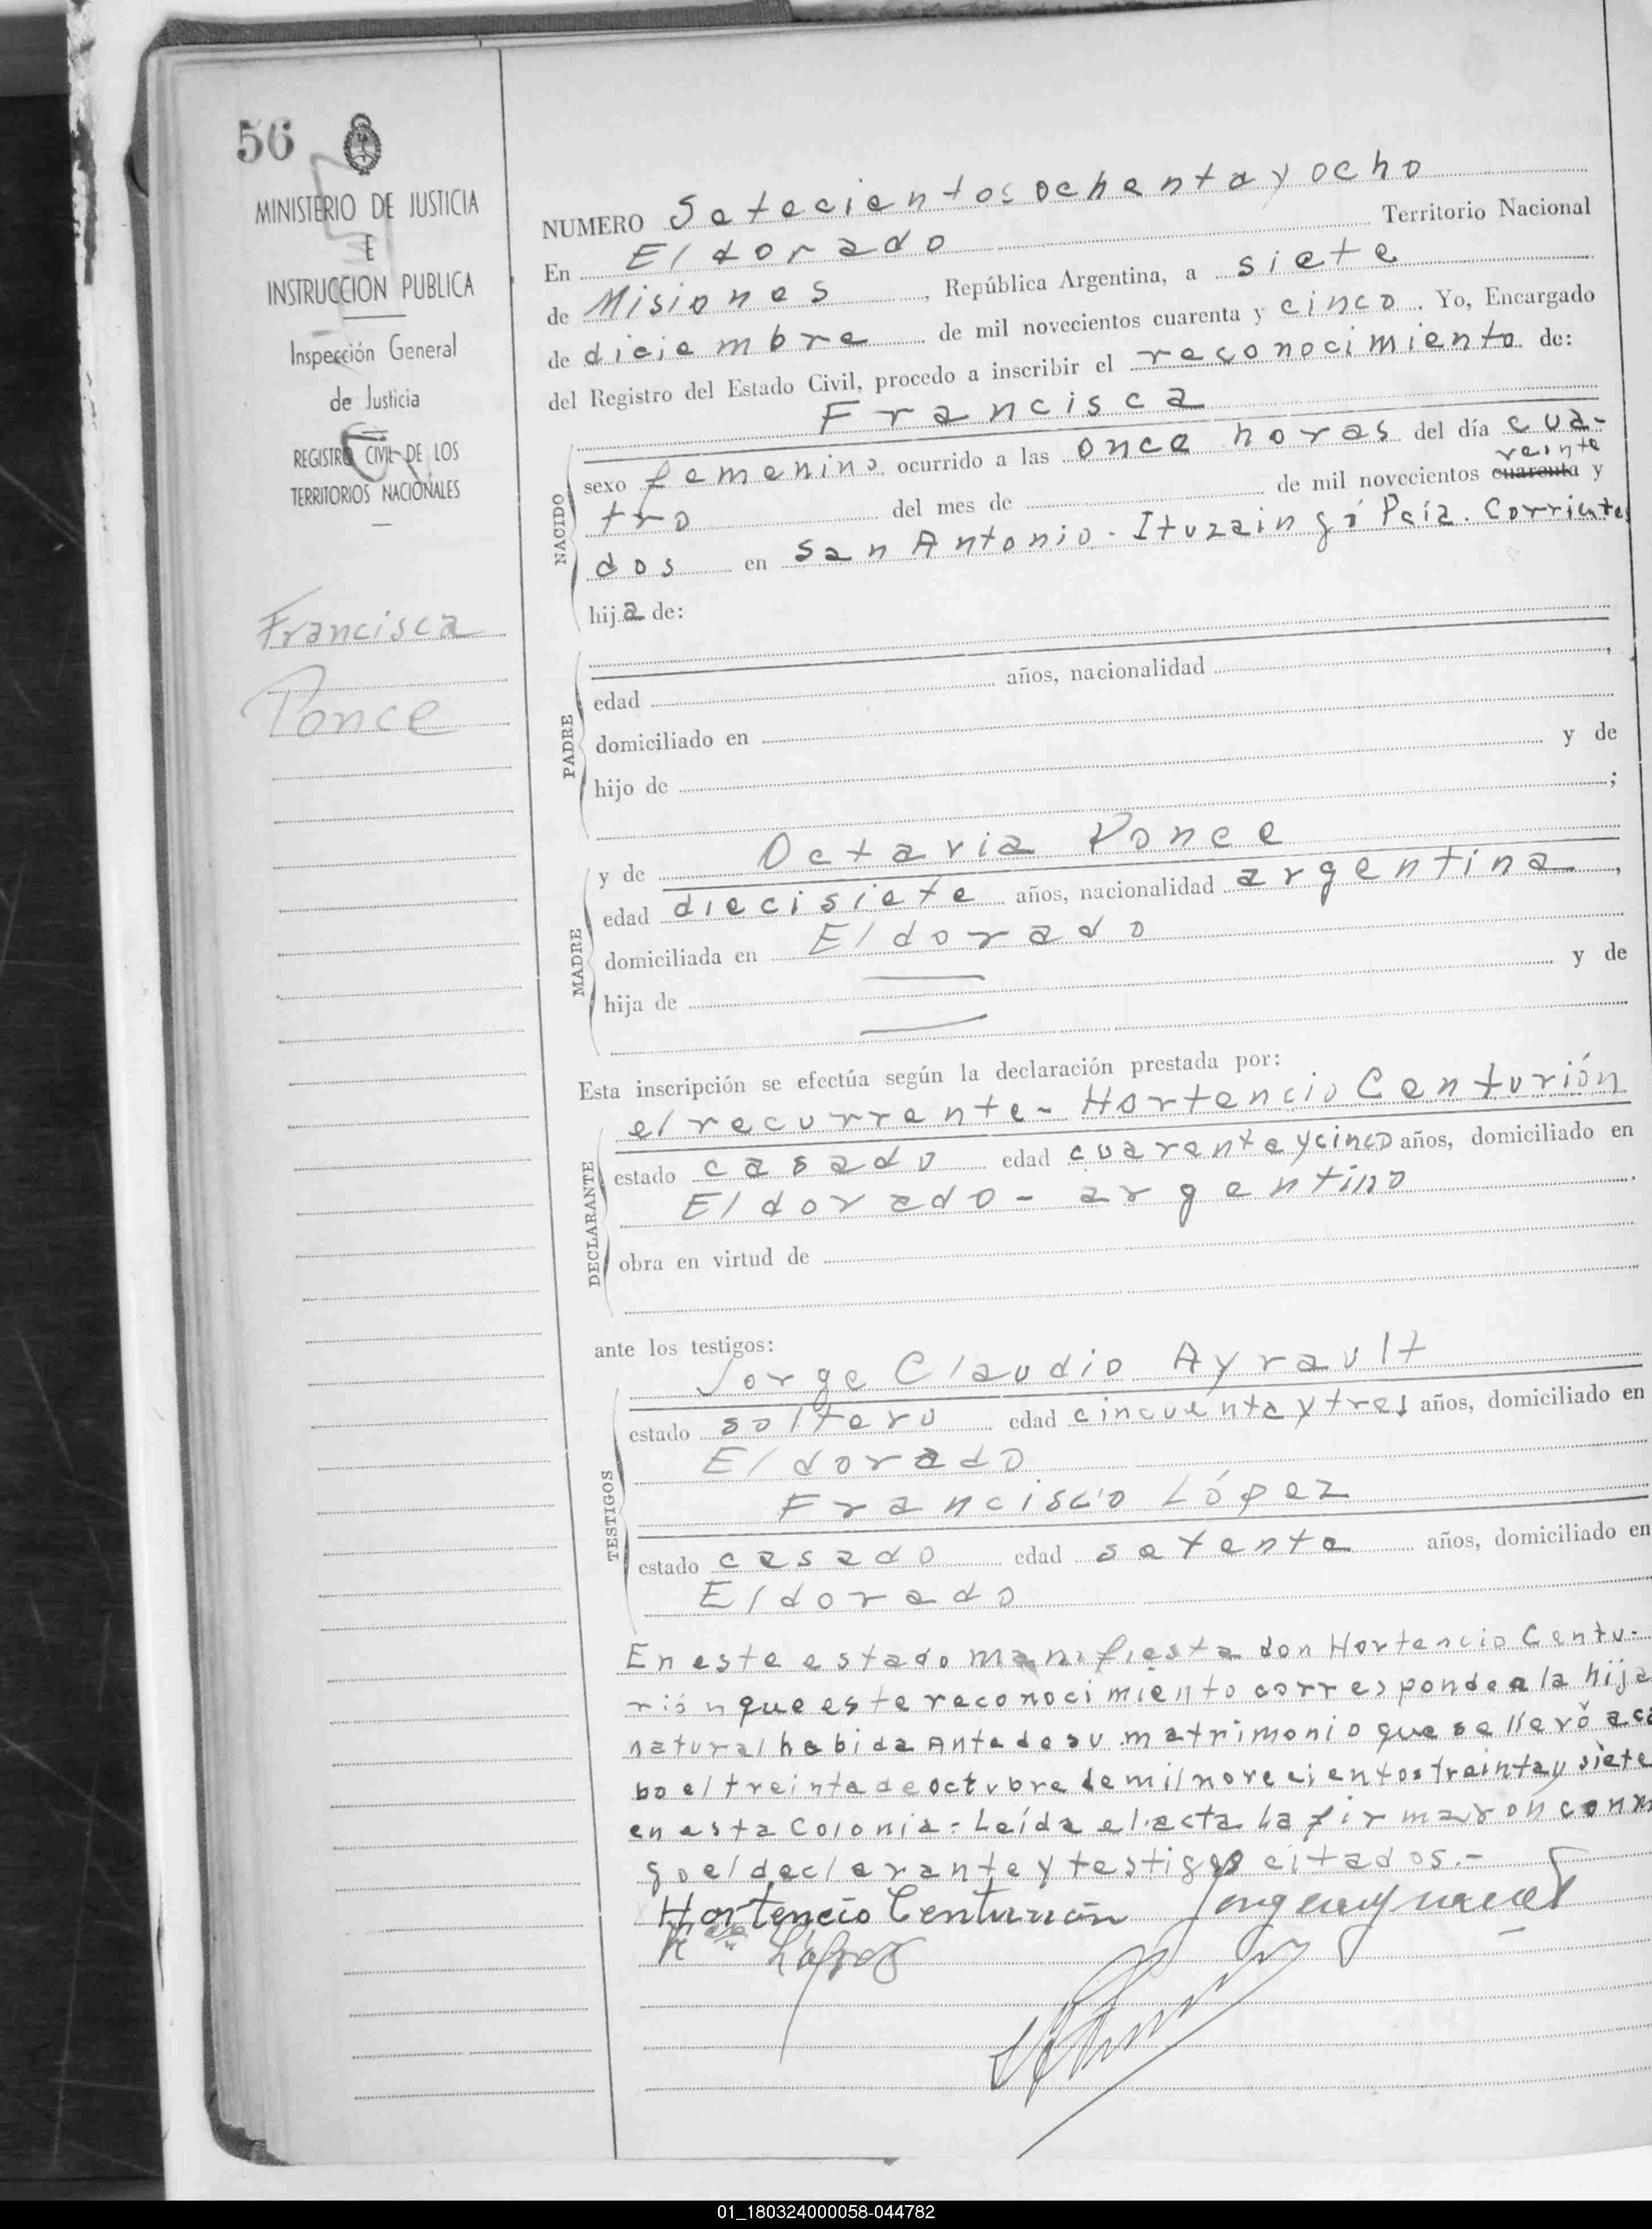 56
MINISTERIO DE JUSTICIA
E
INSTRUCCION PUBLICA
Inspección General
de Justicia
REGISTRO CIVIL DE LOS
TERRITORIOS NACIONALES
Francisca
Ponce
NUMERO Setecientos ochenta y ocho
En Eldorado Territorio Nacional
de Misiones, República Argentina, a siete
de diciembre de mil novecientos cuarenta y cinco. Yo, Encargado
del Registro del Estado Civil, procedo a inscribir el reconocimiento de:
Francisca
NACIDO
sexo femenino ocurrido a las once horas del día cua-
veinte
tro del mes de de mil novecientos cuarenta y
dos en San Antonio - Ituzaingó Pcia. Corrientes
hija de:
PADRE
edad años, nacionalidad ,
domiciliado en
hijo de y de
;
MADRE
y de Octavia Ponce
edad diecisiete años, nacionalidad argentina,
domiciliada en Eldorado
hija de y de
Esta inscripción se efectúa según la declaración prestada por:
DECLARANTE
el recurrente - Hortencio Centurión
estado casado edad cuarenta y cinco años, domiciliado en
Eldorado - argentino.
obra en virtud de
ante los testigos:
TESTIGOS
Jorge Claudio Ayrault
estado soltero edad cincuenta y tres años, domiciliado en
Eldorado
Francisco López
estado casado edad setenta años, domiciliado en
Eldorado
En este estado manifiesta don Hortencio Centu-
rión que este reconocimiento corresponde a la hija
natural habida Ante de su matrimonio que se llevó a ca
bo el treinta de octubre de mil novecientos treinta y siete
en esta Colonia = Leída el acta la firmarón conm
go el declarante y testigos citados.-
Hortencio Centurión
López
01_180324000058-044782